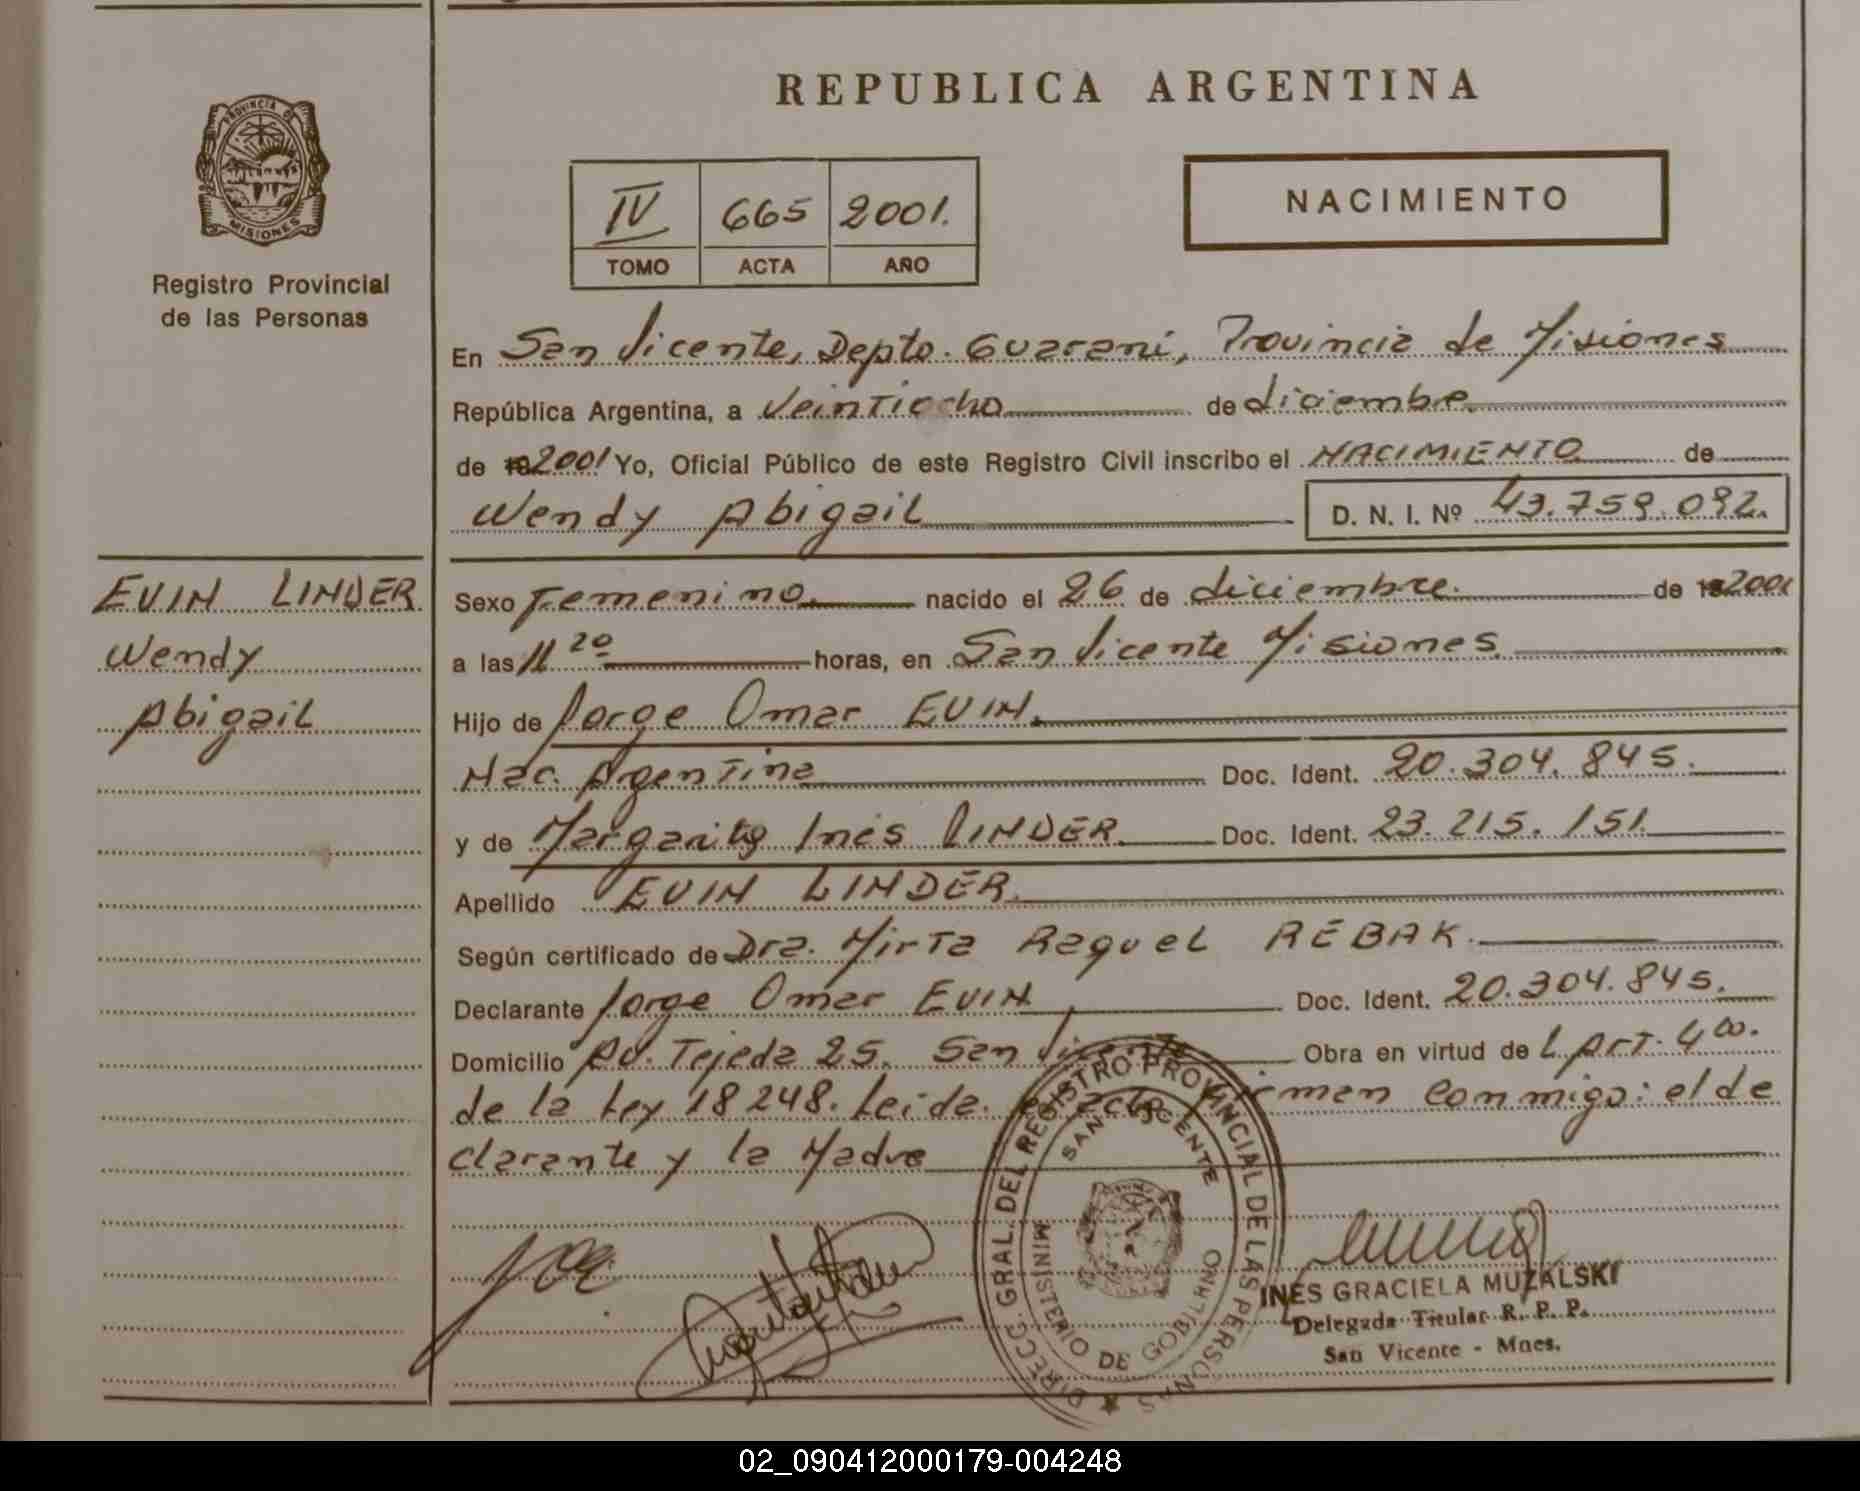 REPUBLICA ARGENTINA
PROVINCIA DE
MISIONES
Registro Provincial
de las Personas
IV 665 2001.
TOMO ACTA AÑO
NACIMIENTO
En San Vicente, Depto. Guaraní, Provincia de Misiones
República Argentina, a Veintiocho de diciembre
de 19 2001 Yo, Oficial Público de este Registro Civil inscribo el NACIMIENTO de
Wendy Abigail D. N. I. Nº 43.759.092.
EVIN LINDER
Wendy
Abigail
Sexo Femenino. nacido el 26 de diciembre. de 19 2001
a las 11 20 horas, en San Vicente Misiones.
Hijo de Jorge Omar EVIN.
Nac. Argentina Doc. Ident. 20.304.845.
y de Margarita Inés LINDER. Doc. Ident. 23.215.151.
Apellido EVIN LINDER.
Según certificado de Dra. Mirta Raquel REBAK.
Declarante Jorge Omar EVIN Doc. Ident. 20.304.845.
Domicilio Av. Tejeda 25. San Vicente Obra en virtud de L Art. 4to.
de la Ley 18248. Leida. el acta firman conmigo: el de
clarante y la Madre
DIRECC. GRAL. DEL REGISTRO PROVINCIAL DE LAS PERSONAS
SAN VICENTE
MINISTERIO DE GOBIERNO
INES GRACIELA MUZALSKI
Delegada Titular R. P. P.
San Vicente - Mnes.
02_090412000179-004248